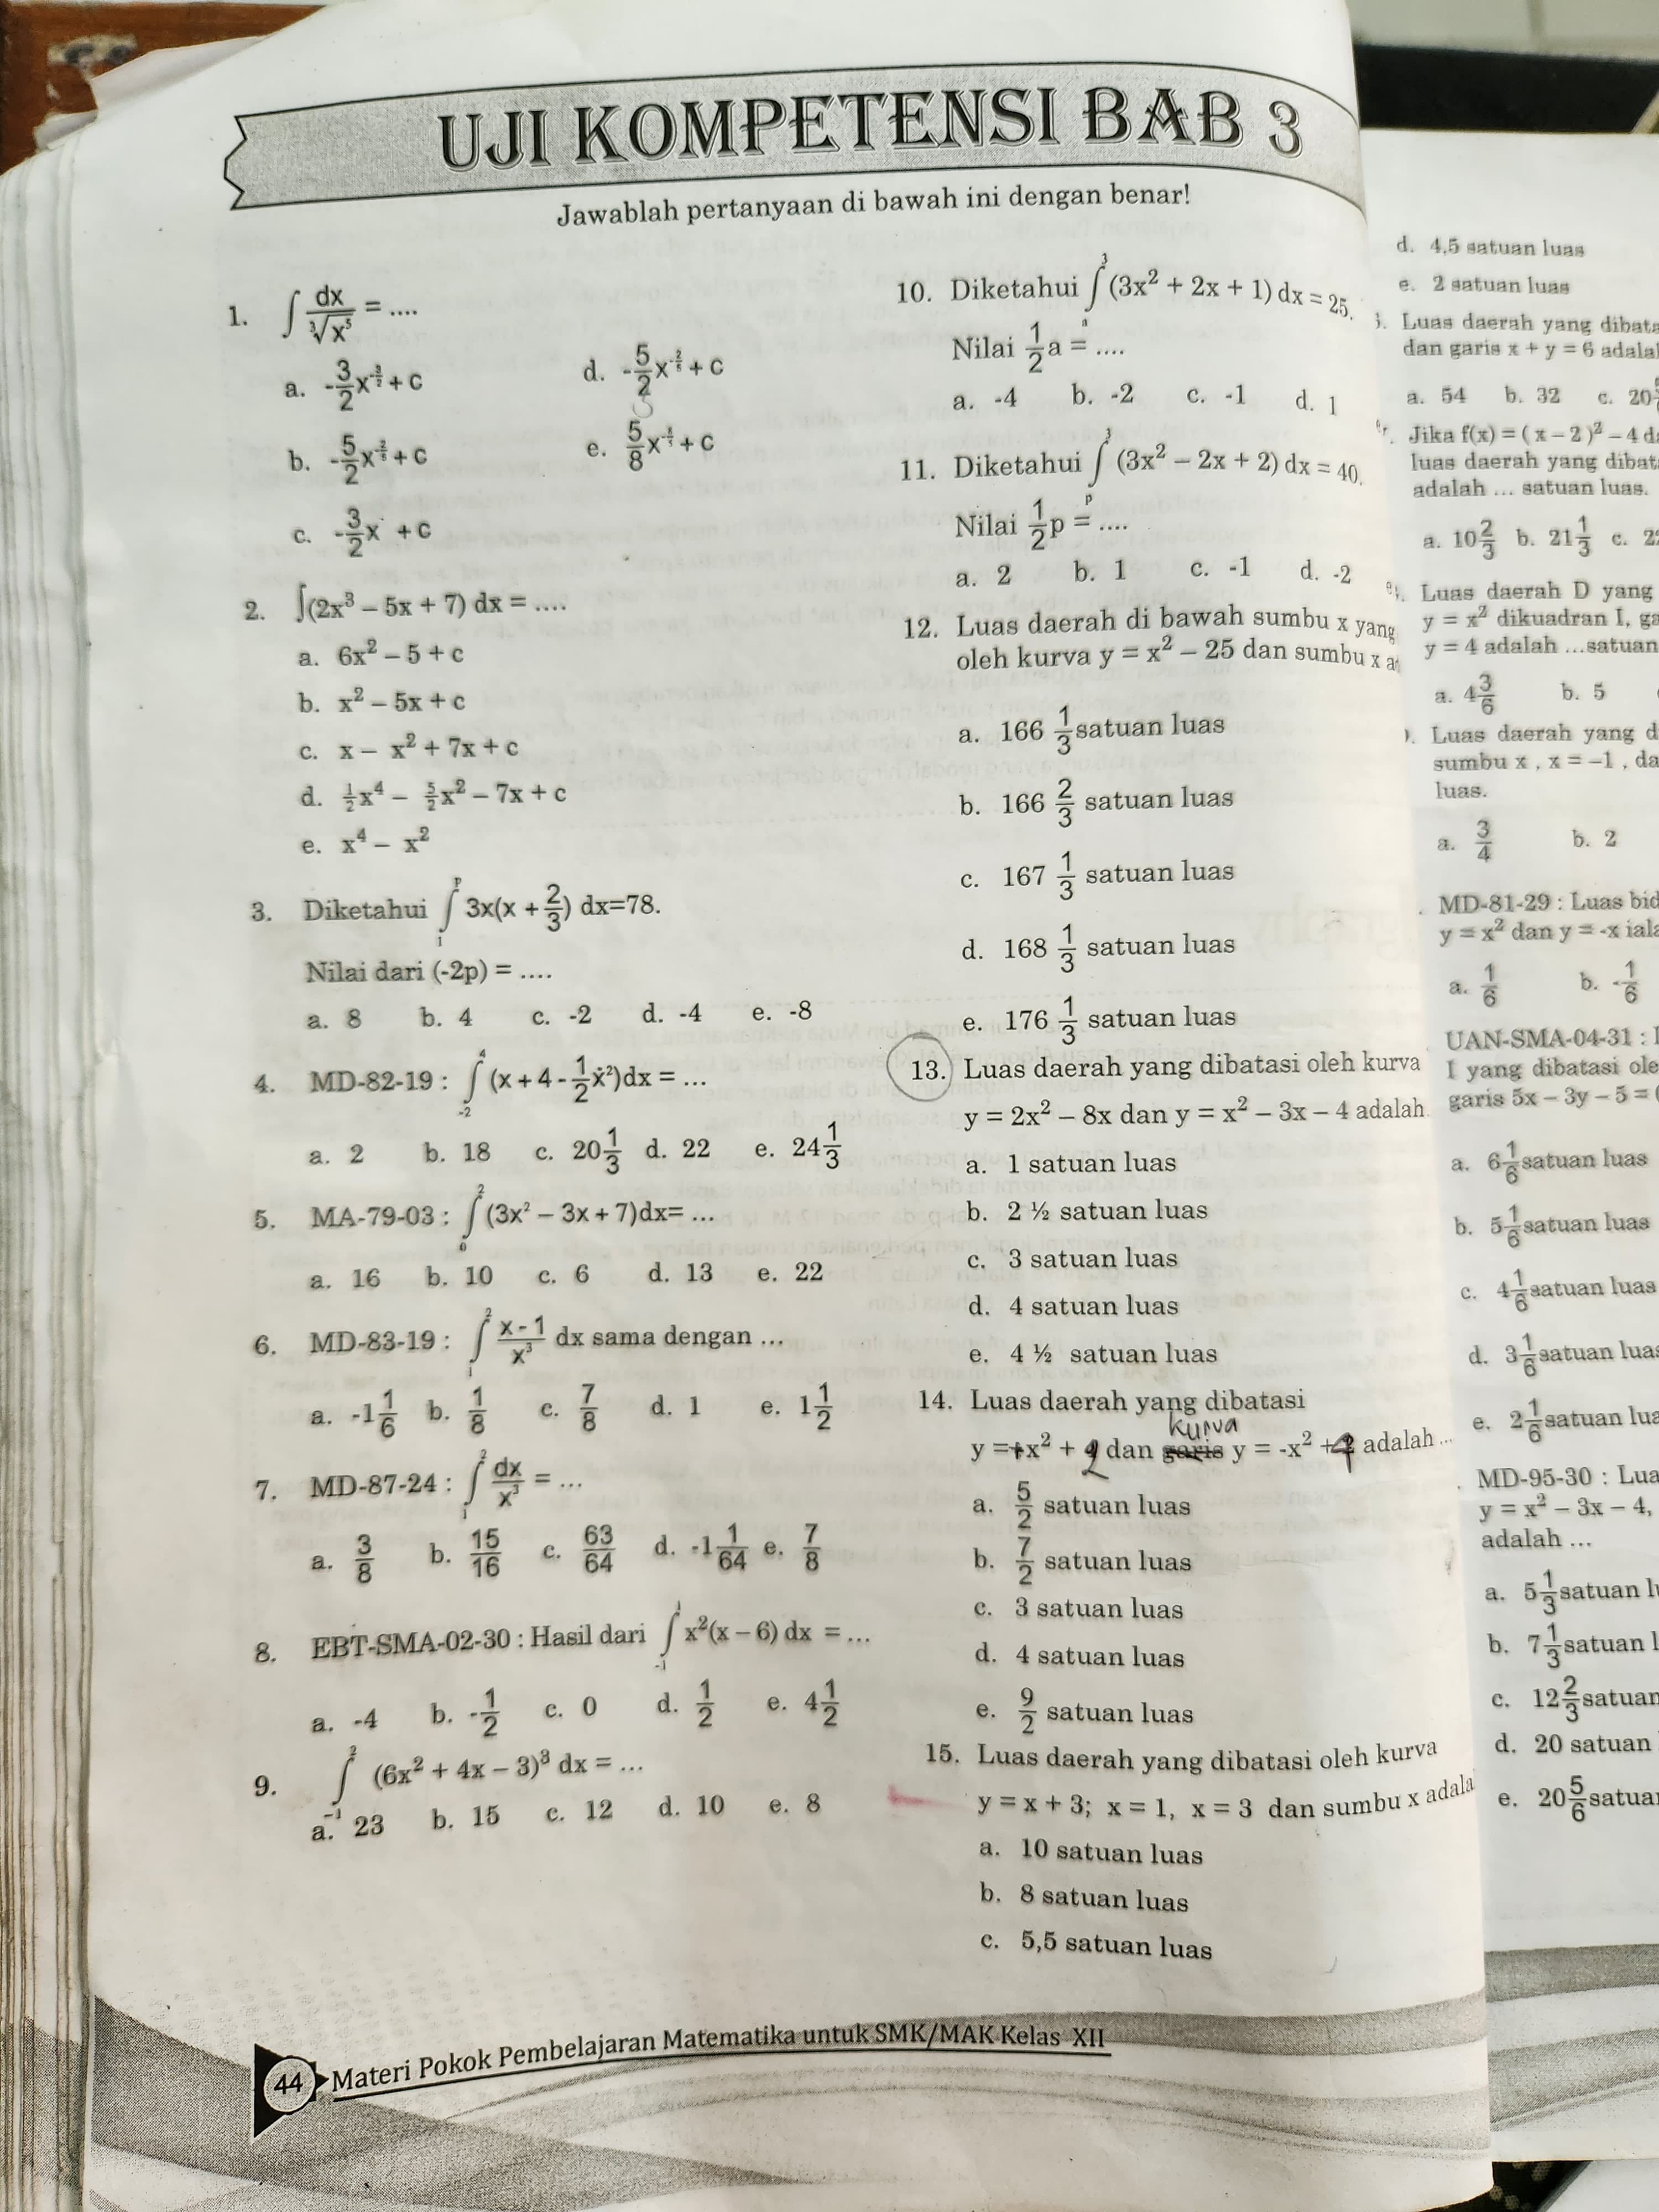 UJI KOMPETENSI BAB 3
Jawablah pertanyaan di bawah ini dengan benar!
1. ∫ dx/∛x⁵ = ....
a. -3/2 x + c
d. -5/2 x + c
b. -5/2 x + c
e. 5/8 x + c
c. -3/2 x + c
2. ∫(2x³ – 5x + 7) dx = ....
a. 6x² – 5 + c
b. x² – 5x + c
c. x – x² + 7x + c
d. ½x⁴ – 5/2 x² – 7x + c
e. x⁴ – x²
3. Diketahui ∫₁ᵖ 3x(x + 2/3) dx=78.
Nilai dari (-2p) = ....
a. 8 b. 4 c. -2 d. -4 e. -8
4. MD-82-19 : ∫₋₂⁴ (x + 4 - 1/2 x²)dx = ...
a. 2 b. 18 c. 20 1/3 d. 22 e. 24 1/3
5. MA-79-03 : ∫₀² (3x² – 3x + 7)dx= ...
a. 16 b. 10 c. 6 d. 13 e. 22
6. MD-83-19 : ∫₁² x - 1/x³ dx sama dengan ...
a. -1 1/6 b. 1/8 c. 7/8 d. 1 e. 1 1/2
7. MD-87-24 : ∫₁² dx/x³ = ...
a. 3/8 b. 15/16 c. 63/64 d. -1 1/64 e. 7/8
8. EBT-SMA-02-30 : Hasil dari ∫₋₁¹ x²(x – 6) dx = ...
a. -4 b. -1/2 c. 0 d. 1/2 e. 4 1/2
9. ∫₋₁² (6x² + 4x – 3)³ dx = ...
a. 23 b. 15 c. 12 d. 10 e. 8
10. Diketahui ∫ₐ³ (3x² + 2x + 1) dx = 25.
Nilai 1/2 a = ....
a. -4 b. -2 c. -1 d. 1
11. Diketahui ∫ₚ³ (3x² – 2x + 2) dx = 40.
Nilai 1/2 p = ....
a. 2 b. 1 c. -1 d. -2
12. Luas daerah di bawah sumbu x yang
oleh kurva y = x² – 25 dan sumbu x a
a. 166 1/3 satuan luas
b. 166 2/3 satuan luas
c. 167 1/3 satuan luas
d. 168 1/3 satuan luas
e. 176 1/3 satuan luas
13. Luas daerah yang dibatasi oleh kurva
y = 2x² – 8x dan y = x² – 3x – 4 adalah
a. 1 satuan luas
b. 2 ½ satuan luas
c. 3 satuan luas
d. 4 satuan luas
e. 4 ½ satuan luas
14. Luas daerah yang dibatasi
kurva
y = x² + dan garis y = -x² + adalah ...
a. 5/2 satuan luas
b. 7/2 satuan luas
c. 3 satuan luas
d. 4 satuan luas
e. 9/2 satuan luas
15. Luas daerah yang dibatasi oleh kurva
y = x + 3; x = 1, x = 3 dan sumbu x adala
a. 10 satuan luas
b. 8 satuan luas
c. 5,5 satuan luas
44 Materi Pokok Pembelajaran Matematika untuk SMK/MAK Kelas XII
d. 4,5 satuan luas
e. 2 satuan luas
Luas daerah yang dibata
dan garis x + y = 6 adala
a. 54 b. 32 c. 20
Jika f(x) = ( x – 2 )² – 4 d
luas daerah yang dibat
adalah ... satuan luas.
a. 10 2/3 b. 21 1/3 c. 2
Luas daerah D yang
y = x² dikuadran I, ga
y = 4 adalah ...satuan
a. 4 3/6 b. 5
Luas daerah yang d
sumbu x , x = –1 , da
luas.
a. 3/4 b. 2
MD-81-29 : Luas bid
y = x² dan y = -x iala
a. 1/6 b. -1/6
UAN-SMA-04-31 :
I yang dibatasi ole
garis 5x – 3y – 5 =
a. 6 1/6 satuan luas
b. 5 1/6 satuan luas
c. 4 1/6 satuan luas
d. 3 1/6 satuan luas
e. 2 1/6 satuan lua
MD-95-30 : Lua
y = x² – 3x – 4,
adalah ...
a. 5 1/3 satuan l
b. 7 1/3 satuan l
c. 12 2/3 satuan
d. 20 satuan
e. 20 5/6 satua